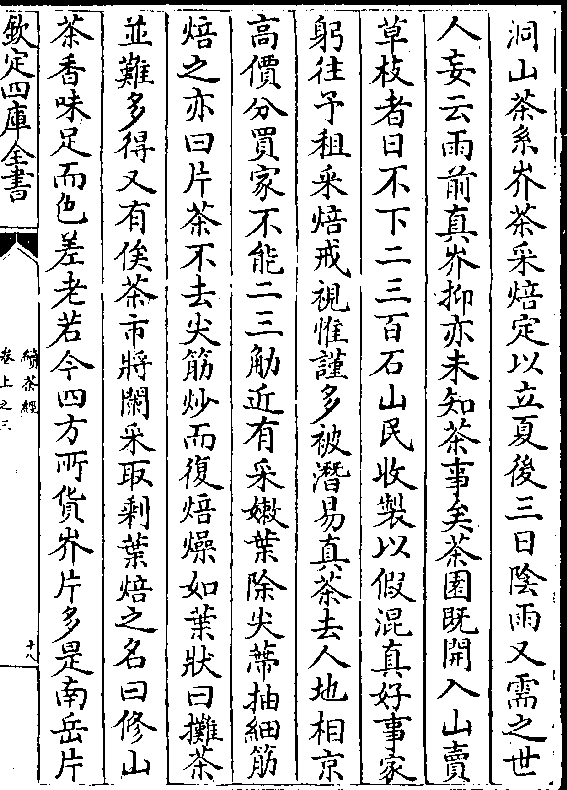 洞山茶系岕茶采焙定以立夏後三日陰雨又需之世
人妄云雨前真岕抑亦未知茶事矣茶園既開入山賣
草枝者日不下二三百石山民收製以假混真好事家
躬往予租采焙戒視惟謹多被潛易真茶去人地相京
高價分買家不能二三觔近有采嫩葉除尖蔕抽細筋
焙之亦曰片茶不去尖筋炒而復焙燥如葉狀曰攤茶
並難多得又有俟茶市將闌采取剩葉焙之名曰修山
茶香味足而色差老若今四方所貨岕片多是南岳片
欽定四庫全書
續茶經
卷上之三
十八